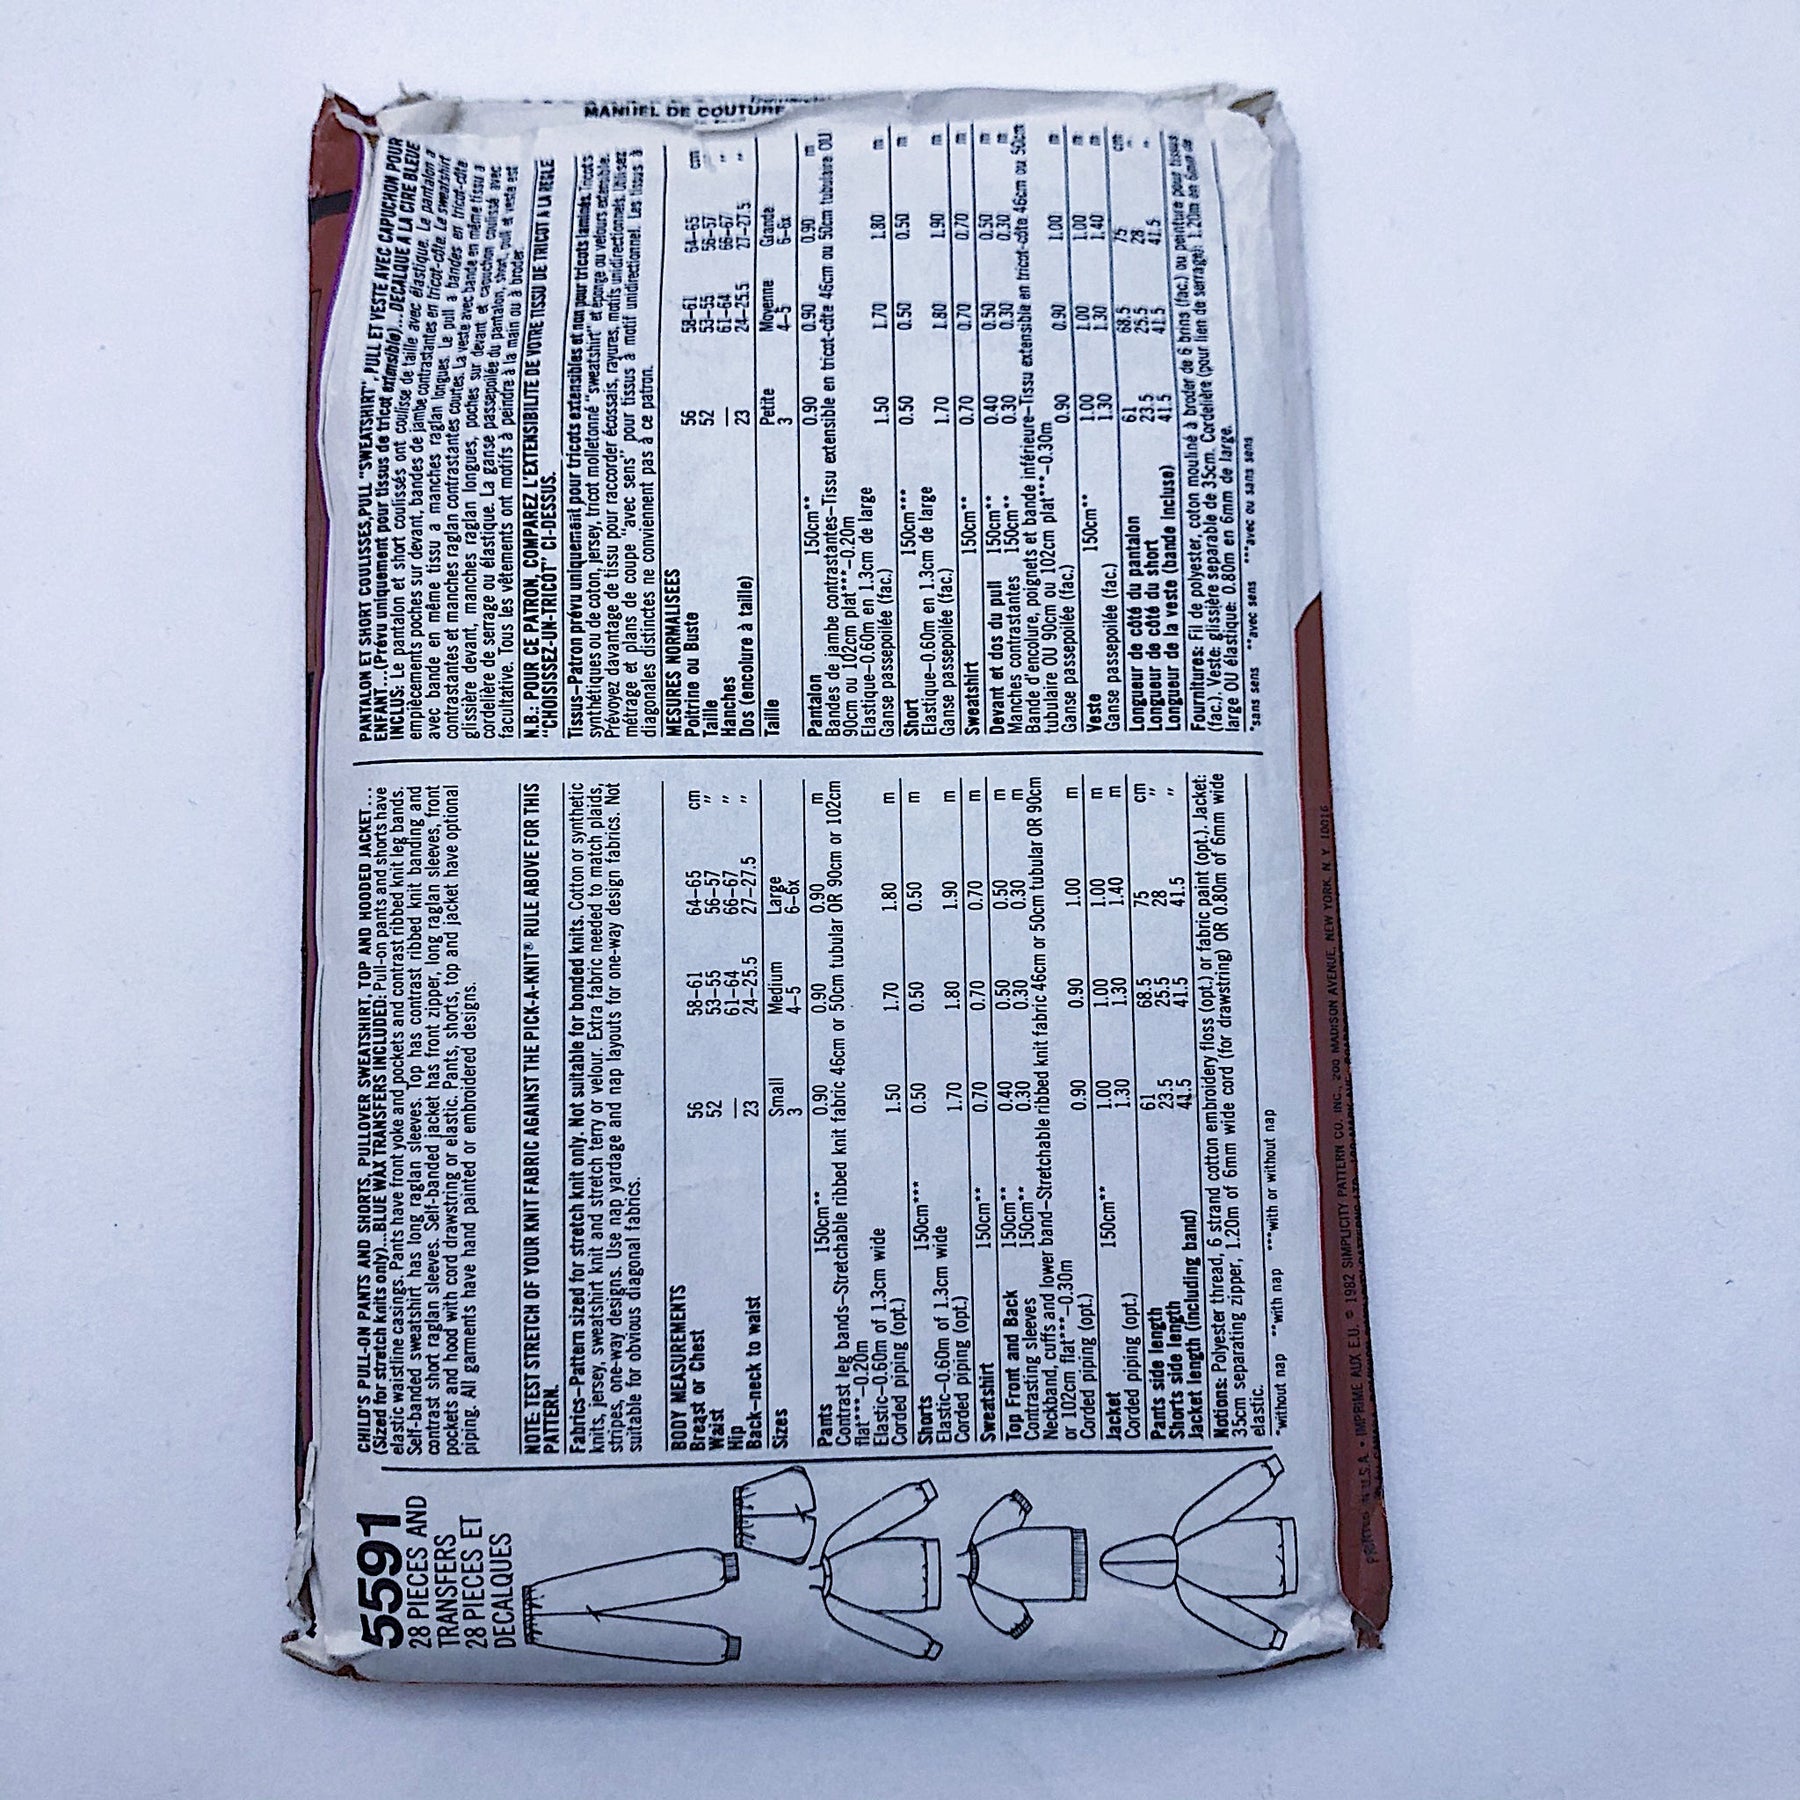 5591
28 PIECES AND
TRANSFERS
28 PIECES ET
DECALQUES
CHILD'S PULL-ON PANTS AND SHORTS, PULLOVER SWEATSHIRT, TOP AND HOODED JACKET...
(Sized for stretch knits only)...BLUE WAX TRANSFERS INCLUDED: Pull-on pants and shorts have
elastic waistline casings. Pants have front yoke and pockets and contrast ribbed knit leg bands.
Self-banded sweatshirt has long raglan sleeves. Top has contrast ribbed knit banding and
contrast short raglan sleeves. Self-banded jacket has front zipper, long raglan sleeves, front
pockets and hood with cord drawstring or elastic. Pants, shorts, top and jacket have optional
piping. All garments have hand painted or embroidered designs.
NOTE: TEST STRETCH OF YOUR KNIT FABRIC AGAINST THE PICK-A-KNIT® RULE ABOVE FOR THIS
PATTERN.
Fabrics—Pattern sized for stretch knit only. Not suitable for bonded knits. Cotton or synthetic
knits, jersey, sweatshirt knit and stretch terry or velour. Extra fabric needed to match plaids,
stripes, one-way designs. Use nap yardage and nap layouts for one-way design fabrics. Not
suitable for obvious diagonal fabrics.
BODY MEASUREMENTS
Breast or Chest 56 58—61 64—65 cm
Waist 52 53—55 56—57 "
Hip — 61—64 66—67 "
Back—neck to waist 23 24—25.5 27—27.5 "
Sizes Small Medium Large
3 4—5 6—6x
Pants 150cm** 0.90 0.90 0.90 m
Contrast leg bands—Stretchable ribbed knit fabric 46cm or 50cm tubular OR 90cm or 102cm
flat***—0.20m
Elastic—0.60m of 1.3cm wide
Corded piping (opt.) 1.50 1.70 1.80 m
Shorts 150cm*** 0.50 0.50 0.50 m
Elastic—0.60m of 1.3cm wide
Corded piping (opt.) 1.70 1.80 1.90 m
Sweatshirt 150cm** 0.70 0.70 0.70 m
Top Front and Back 150cm** 0.40 0.50 0.50 m
Contrasting sleeves 150cm** 0.30 0.30 0.30 m
Neckband, cuffs and lower band—Stretchable ribbed knit fabric 46cm or 50cm tubular OR 90cm
or 102cm flat***—0.30m
Corded piping (opt.) 0.90 0.90 1.00 m
Jacket 150cm** 1.00 1.00 1.00 m
Corded piping (opt.) 1.30 1.30 1.40 m
Pants side length 61 68.5 75 cm
Shorts side length 23.5 25.5 28 "
Jacket length (including band) 41.5 41.5 41.5 "
Notions: Polyester thread, 6 strand cotton embroidery floss (opt.) or fabric paint (opt.). Jacket:
35cm separating zipper, 1.20m of 6mm wide cord (for drawstring) OR 0.80m of 6mm wide
elastic.
*without nap **with nap ***with or without nap
MANUEL DE COUTURE
PANTALON ET SHORT COULISSES, PULL "SWEATSHIRT", PULL ET VESTE AVEC CAPUCHON POUR
ENFANT...(Prévu uniquement pour tissus de tricot extensible)...DECALQUE A LA CIRE BLEUE
INCLUS: Le pantalon et short coulissés ont coulisse de taille avec élastique. Le pantalon a
empiècements poches sur devant, bandes de jambe contrastantes en tricot-côte. Le sweatshirt
avec bande en même tissu a manches raglan longues. Le pull a bandes en tricot-côte
contrastantes et manches raglan contrastantes courtes. La veste avec bande en même tissu a
glissière devant, manches raglan longues, poches sur devant et capuchon coulissé avec
cordelière de serrage ou élastique. La ganse passepoilée du pantalon, short, pull et veste est
facultative. Tous les vêtements ont motifs à peindre à la main ou à broder.
N.B.: POUR CE PATRON, COMPAREZ L'EXTENSIBILITE DE VOTRE TISSU DE TRICOT A LA REGLE
"CHOISISSEZ-UN-TRICOT" CI-DESSUS.
Tissus—Patron prévu uniquement pour tricots extensibles et non pour tricots laminés. Tricots
synthétiques ou de coton, jersey, tricot molletonné "sweatshirt" et éponge ou velours extensible.
Prévoyez davantage de tissu pour raccorder écossais, rayures, motifs unidirectionnels. Utilisez
métrage et plans de coupe "avec sens" pour tissus à motif unidirectionnel. Les tissus à
diagonales distinctes ne conviennent pas à ce patron.
MESURES NORMALISEES
Poitrine ou Buste 56 58—61 64—65 cm
Taille 52 53—55 56—57 "
Hanches — 61—64 66—67 "
Dos (encolure à taille) 23 24—25.5 27—27.5 "
Taille Petite Moyenne Grande
3 4—5 6—6x
Pantalon 150cm** 0.90 0.90 0.90 m
Bandes de jambe contrastantes—Tissu extensible en tricot-côte 46cm ou 50cm tubulaire OU
90cm ou 102cm plat***—0.20m
Elastique—0.60m en 1.3cm de large
Ganse passepoilée (fac.) 1.50 1.70 1.80 m
Short 150cm*** 0.50 0.50 0.50 m
Elastique—0.60m en 1.3cm de large
Ganse passepoilée (fac.) 1.70 1.80 1.90 m
Sweatshirt 150cm** 0.70 0.70 0.70 m
Devant et dos du pull 150cm** 0.40 0.50 0.50 m
Manches contrastantes 150cm** 0.30 0.30 0.30 m
Bande d'encolure, poignets et bande inférieure—Tissu extensible en tricot-côte 46cm ou 50cm
tubulaire OU 90cm ou 102cm plat***—0.30m
Ganse passepoilée (fac.) 0.90 0.90 1.00 m
Veste 150cm** 1.00 1.00 1.00 m
Ganse passepoilée (fac.) 1.30 1.30 1.40 m
Longueur de côté du pantalon 61 68.5 75 cm
Longueur de côté du short 23.5 25.5 28 "
Longueur de la veste (bande incluse) 41.5 41.5 41.5 "
Fournitures: Fil de polyester, coton mouliné à broder de 6 brins (fac.) ou peinture pour tissus
(fac.). Veste: glissière séparable de 35cm. Cordelière (pour lien de serrage): 1.20m en 6mm de
large OU élastique: 0.80m en 6mm de large.
*sans sens **avec sens ***avec ou sans sens
PRINTED IN U.S.A. • IMPRIME AUX E.U. © 1982 SIMPLICITY PATTERN CO. INC., 200 MADISON AVENUE, NEW YORK, N.Y. 10016